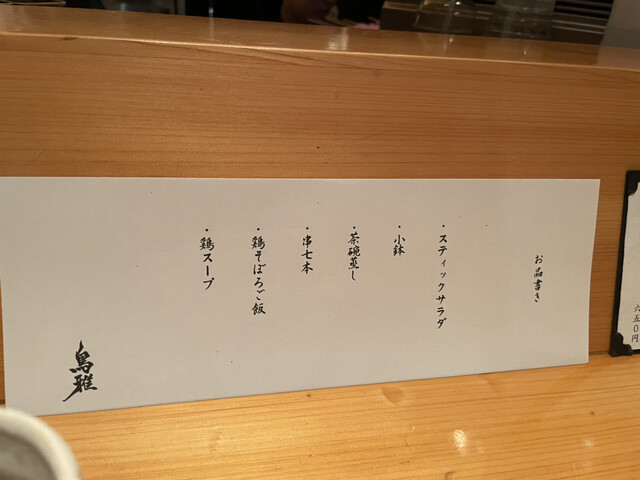 お品書き
・スティックサラダ
・小鉢
・茶碗蒸し
・串七本
・鶏そぼろご飯
・鶏スープ
鳥雅
六五〇円